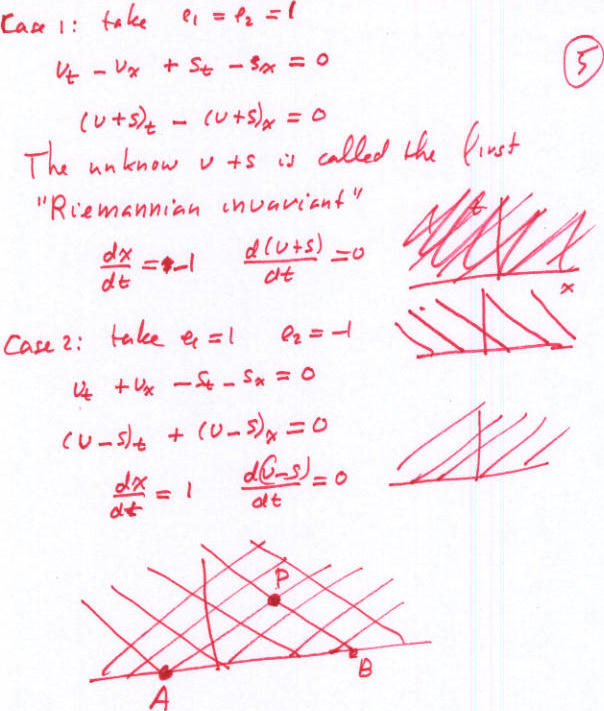 Case 1: take e₁ = e₂ = 1
⑤
υₜ - υₓ + sₜ - sₓ = 0
(υ+s)ₜ - (υ+s)ₓ = 0
The unknow υ+s is called the first
"Riemannian invariant"
dx/dt = -1 d(υ+s)/dt = 0
t
x
Case 2: take e₁ = 1 e₂ = -1
υₜ + υₓ - sₜ - sₓ = 0
(υ-s)ₜ + (υ-s)ₓ = 0
dx/dt = 1 d(υ-s)/dt = 0
P
B
A